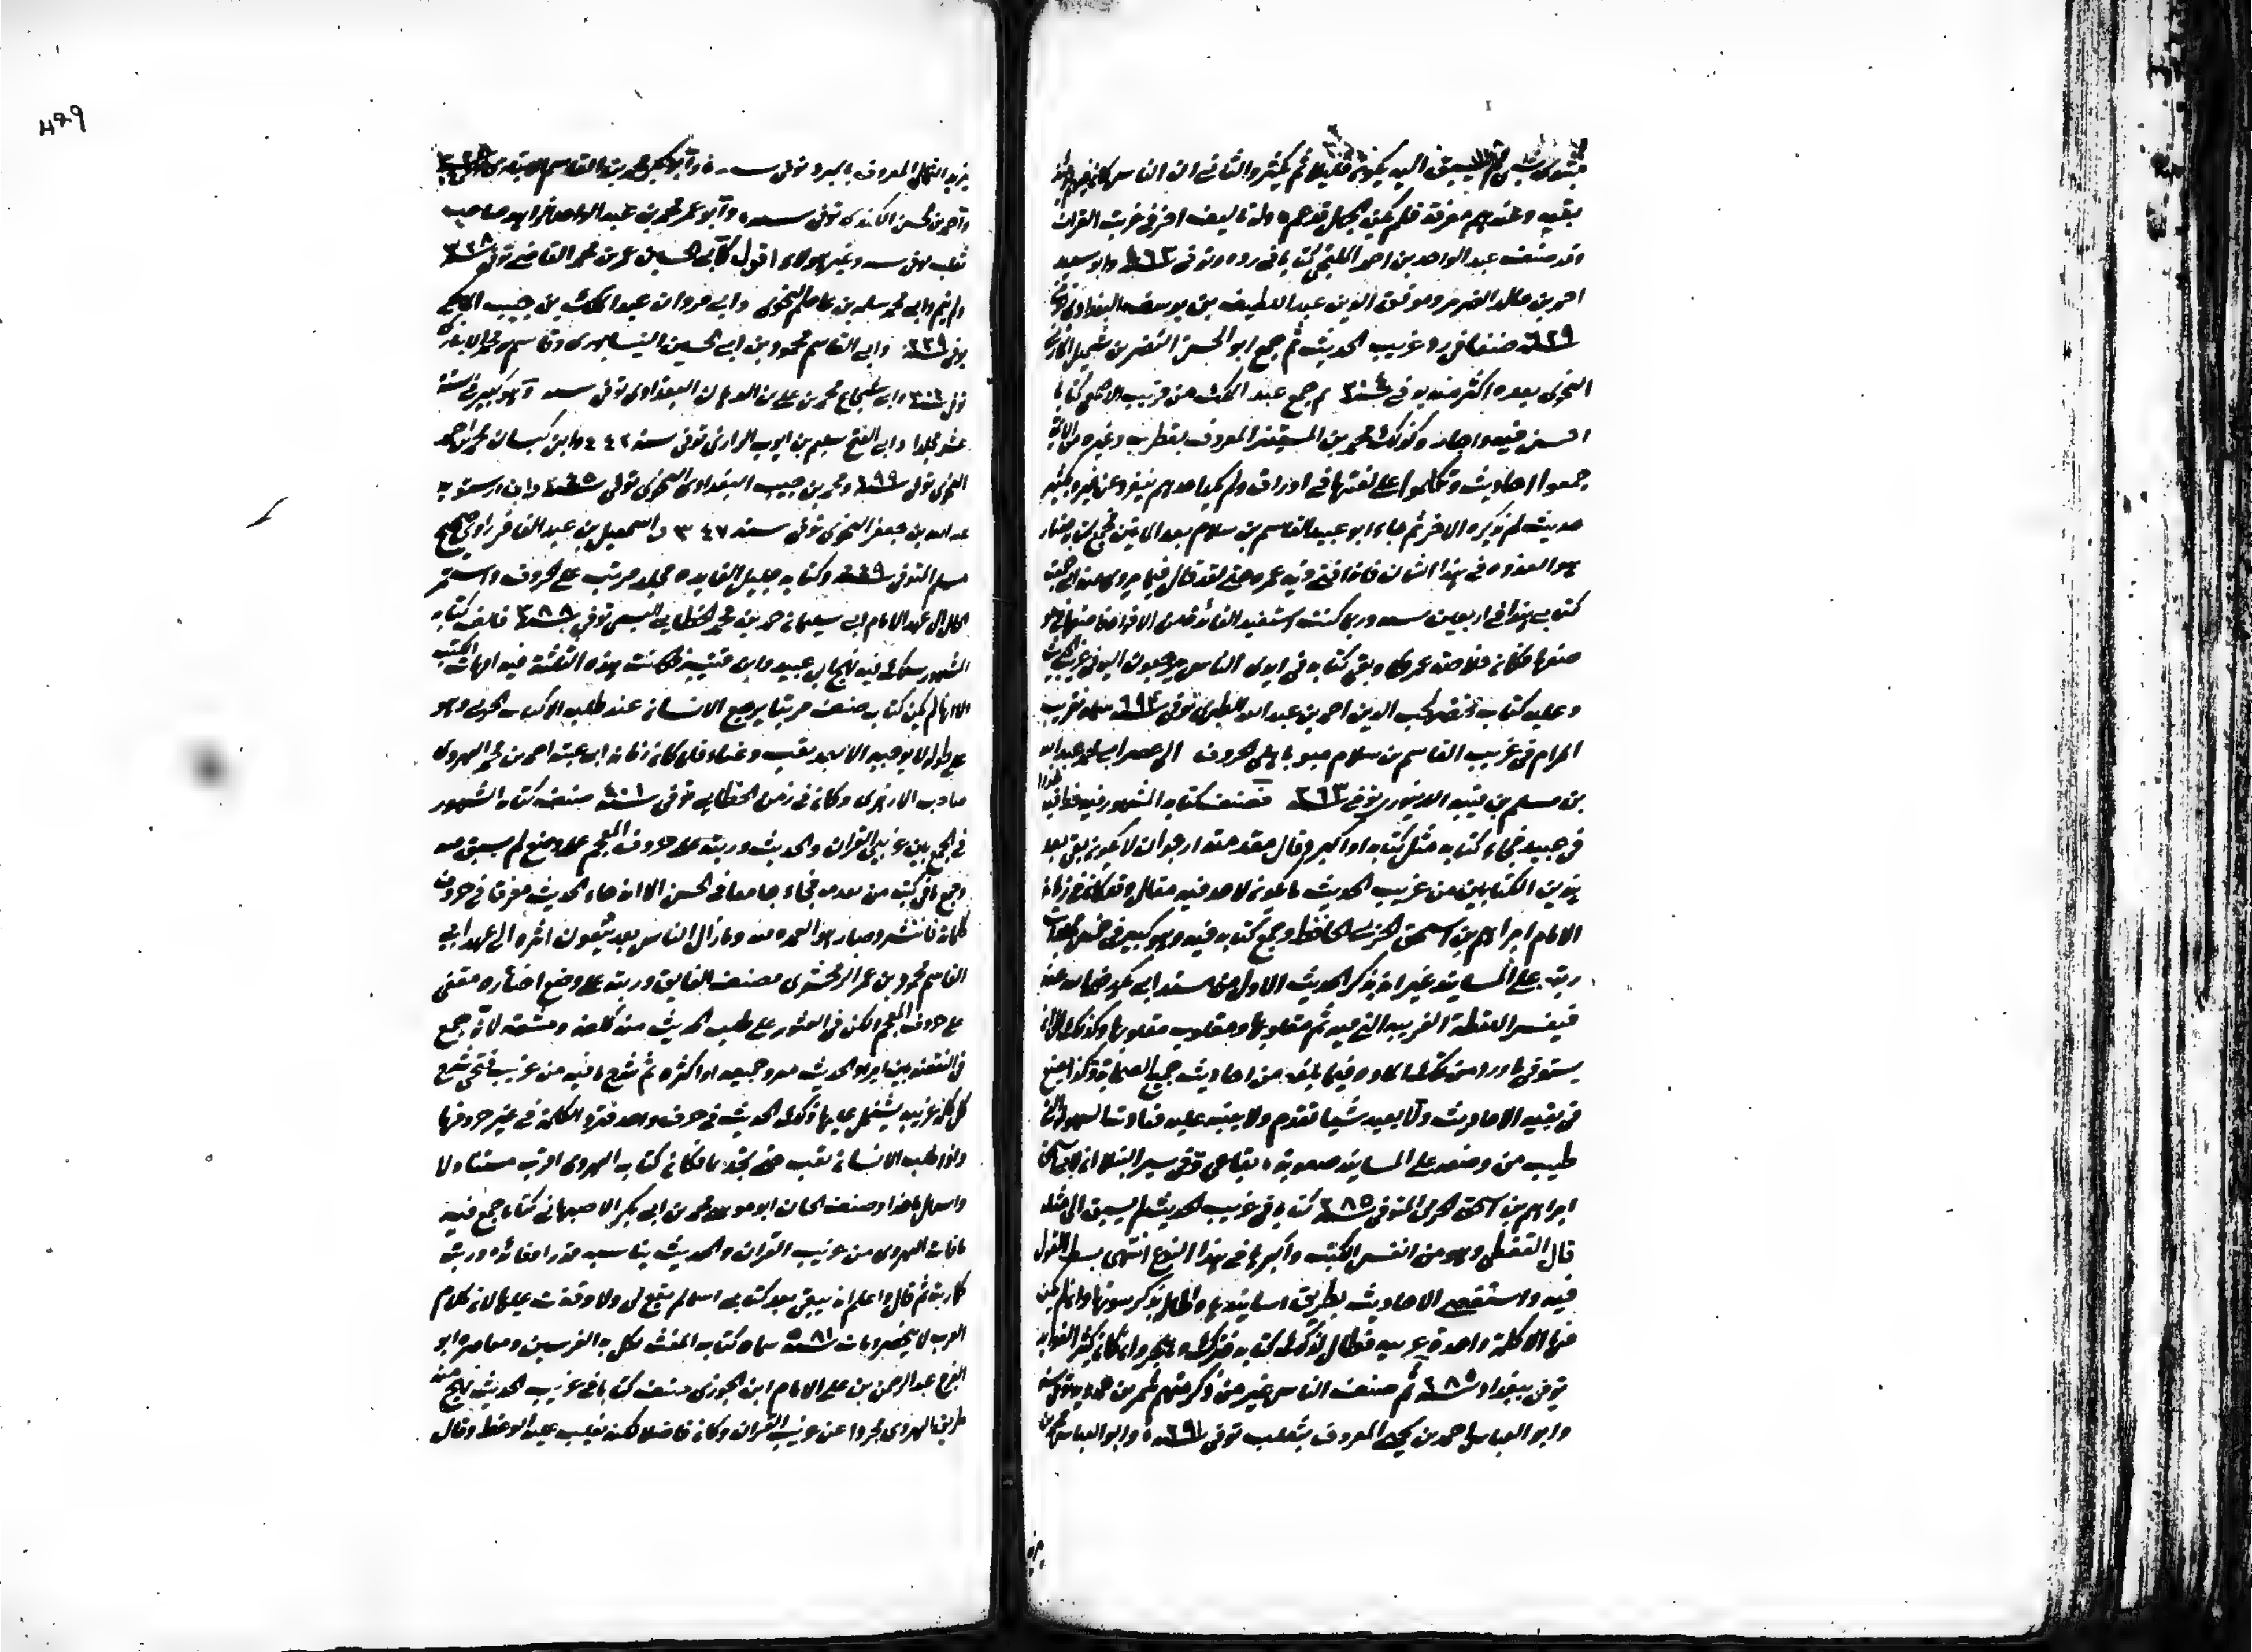 مبتدئ بشئ لم يسبق اليه يكون قليلا ثم يكثر والثانى ان الناس كان فيهم
بقيه وعندهم معرفة فلم يكن الجهل قد عم وله تاليف اخر فى غريب القران
وقد صنف عبد الواحد بن احمد المليحى كتابا فى رده وتوفى سنة ٤٦٣ وابو سعيد
احمد بن خالد الضرير وموفق الدين عبد اللطيف بن يوسف البغدادى توفى
سنة ٦٢٩ صنفا فى رد غريب الحديث ثم جمع ابو الحسن النضر بن شميل المازنى
النحوى بعده اكثر منه توفى سنة ٢٠٤ ثم جمع عبد الملك من قريب الاصمعى كتابا
احسن فيه واجاد وكذلك محمد بن المستنير المعروف بقطرب وغيره من الائمة
جمعوا احاديث وتكلموا على لغتها فى اوراق ولم يكد احدهم ينفرد عن غيره بكثير
حديث لم يذكره الاخر ثم جاء ابو عبيد القاسم بن سلام بعد المايتين فجمع كتابه فصار
هو القدوه فى هذا الشان فانه افنى فيه عمره حتى لقد قال فيما يروى عنه انى جمعت
كتابى هذا فى اربعين سنه وربما كنت استفيد الفائدة من الافواه فاضعها فى
موضعها فكان خلاصة عمرى وبقى كتابه فى ايدى الناس يرجعون اليه فى غريب الحديث
وعليه كتاب مختصر لمحب الدين احمد بن عبد الله الطبرى توفى سنة ٦٩٤ سماه تقريب
المرام فى غريب القاسم بن سلام مبوبا على الحروف الى عصر ابى محمد عبد الله
بن مسلم بن قتيبه الدينورى توفى سنة ٢٧٦ فصنف كتابه المشهور فيه
فجاء كتابه مثل كتابه او اكبر وقال فى مقدمته ارجو ان لا يكون بقى بعد
هذين الكتابين من غريب الحديث ما يكون لاحد فيه مقال وقد كان فى زمانه
الامام ابراهيم بن اسحق الحربى الحافظ وجمع كتابه فيه وهو كبير فى خمس مجلدات
رتبه على المسانيد غير انه يذكر الحديث الاول من مسند ابى بكر رضى الله عنه
فيفسر اللفظة الغريبه التى فيه ثم مقلوبها ومقلوب مقلوبها وكذلك الى ان
يستوفى ما ورد من تلك الماده فيما بلغه من احاديث جميع الصحابة وكذا صنع
فى بقيه الاحاديث ولا يعيد شيئا تقدم ولا ينبه عليه
ابراهيم بن اسحق الحربى المتوفى سنة ٢٨٥ كتابه فى غريب الحديث لم يسبق الى مثله
قال القفطى وهو من انفس الكتب واكبرها فى هذا النوع انتهى بسط القول
فيه واستقصى الاحاديث بطريق اسانيدها واطال بذكر متونها وان لم يكن
فيها الا كلمة واحدة غريبه فطال لذلك كتابه فترك وهجر وان كان كثير الفوايد
توفى ببغداد سنة ٢٨٥ ثم صنف الناس غير من ذكر منهم شمر بن حمدويه
وابو العباس احمد بن يحيى المعروف بثعلب توفى سنة ٢٩١ وابو العباس محمد بن
٤٢٩
يزيد الثمالى المعروف بالمبرد توفى سنه وابو بكر محمد بن القاسم الانبارى توفى سنة ٣٢٨
واحمد بن الحسن الكندى توفى سنه وابو عمر محمد بن عبد الواحد الزاهد صاحب
ثعلب توفى سنه وغير هولاء اقول كابى الحسين عمر بن محمد القاضى توفى سنة ٣٢٨
ولم يتم وابى محمد سلمه بن عاصم النحوى وابى مروان عبد الملك بن حبيب المالكى
توفى سنة ٢٣٩ وابى القاسم محمود بن ابى الحسين النيسابورى وقاسم بن محمد الانبارى
توفى سنة ٣٠٤ وابى شجاع محمد بن على بن الدهان البغدادى توفى سنه وهو كبير فى ستة
عشر مجلدا وابى الفتح سليم بن ايوب الرازى توفى سنة ٤٤٢ وابن كيسان محمد بن احمد
النحوى توفى سنة ٢٩٩ ومحمد بن حبيب البغدادى النحوى توفى سنة ٢٤٥ وابن درستويه
عبد الله بن جعفر النحوى توفى سنة ٣٤٧ واسمعيل بن عبد الغافر راوى صحيح
مسلم المتوفى سنة ٤٤٩ وكتابه جليل الفايده مجلد مرتب على الحروف واستمر
الحال الى عهد الامام ابى سليمان حمد بن محمد الخطابى البستى توفى سنة ٣٨٨ فالف كتابه
المشهور سلك فيه نهج ابى عبيد وابن قتيبة فكانت هذه الثلثة فيه امهات الكتب
الا انه لم يكن كتاب صنف مرتبا يرجع الانسان عند طلبه الا كتاب الحربى وهو
على طوله لا يوجد الا بعد تعب وعناء فلما كان زمان ابى عبيد احمد بن محمد الهروى
صاحب الازهرى وكان فى زمن الخطابى توفى سنة ٤٠١ صنف كتابه المشهور
فى الجمع بين غريبى القران والحديث ورتبه على حروف المعجم على وضع لم يسبق فيه
وجمع ما فى كتب من تقدمه فجاء جامعا فى الحسن الا انه جاء الحديث مفرقا فى حروف
كلماته فانتشر وصار هو العمده فيه وما زال الناس بعده يتبعون اثره الى عهد ابى
القاسم محمود بن عمر الزمخشرى فصنف الفايق ورتبه على وضع اختاره مقفى
على حروف المعجم ولكن فى العثور على طلب الحديث منه كلفة ومشقة لانه جمع
فى التقفيه بين ايراد الحديث مسرودا جميعه او اكثره ثم شرح ما فيه من غريب فيجئ شرح
كل كلمة غريبه يشتمل عليها ذلك الحديث فى حرف واحد فترد الكلمة فى غير حروفها
واذا طلبها الانسان تعب حتى يجدها فكان كتاب الهروى اقرب متناولا
واسهل ماخذا وصنف الحافظ ابو موسى محمد بن ابى بكر الاصبهانى كتابا جمع فيه
ما فات الهروى من غريب القران والحديث يناسبه قدرا وفائدة ورتبه
كما رتبه ثم قال واعلم انه سيبقى بعد كتابى اشياء لم تقع لى ولا وقفت عليها لان كلام
العرب لا ينحصر ومات سنة ٥٨١ سماه كتاب المغيث كمل به الغريبين ومعاصره ابو
الفرج عبد الرحمن بن على الامام ابن الجوزى صنف كتابا فى غريب الحديث نهج فيه
طريق الهروى مجردا عن غريب القران وكان فاضلا لكنه يغلب عليه الوعظ وقال